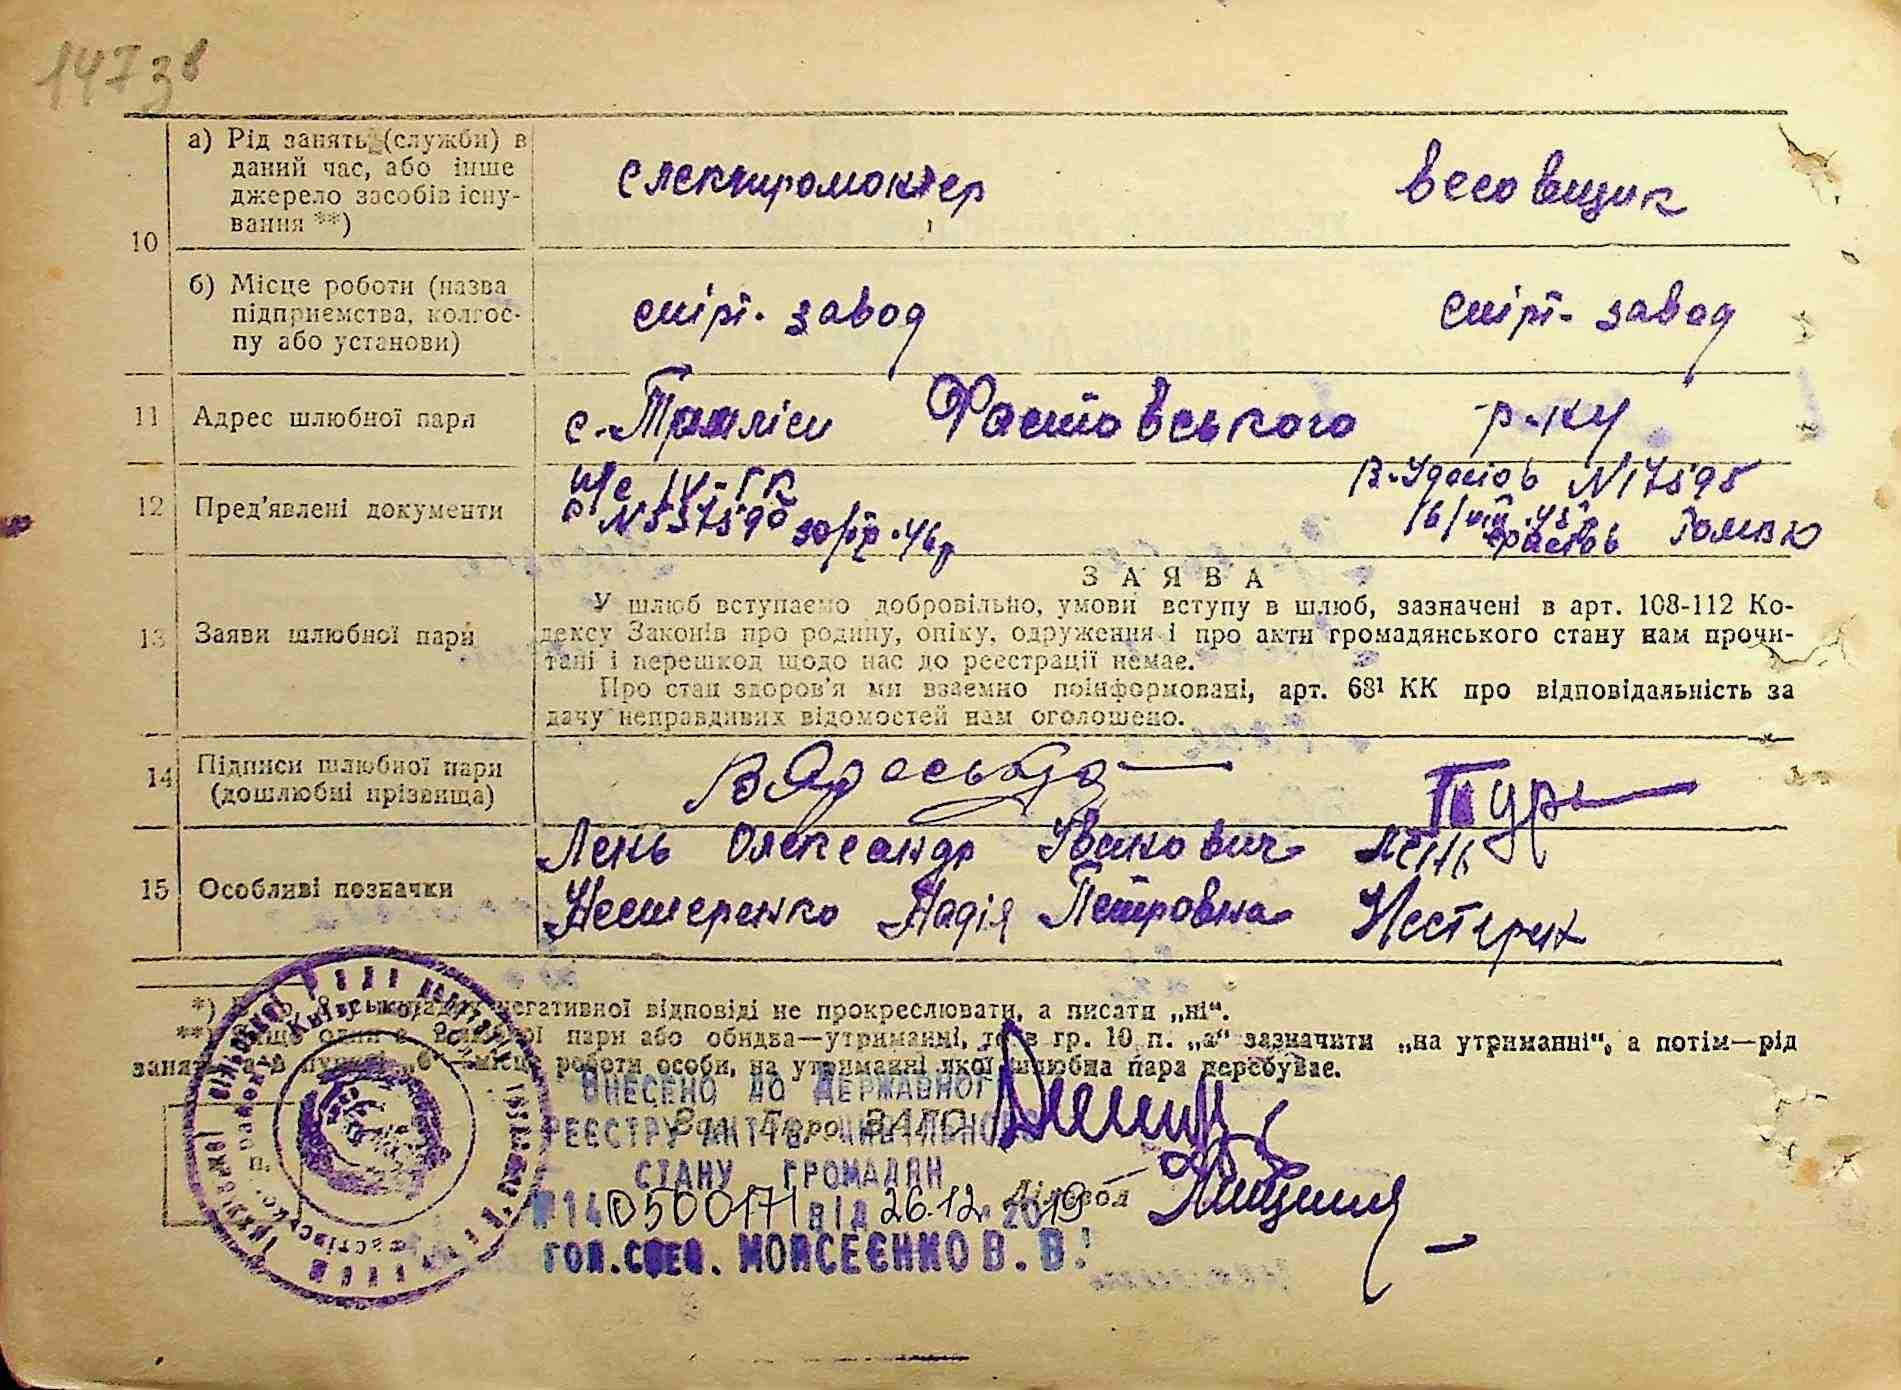 147
а) Рід занять (служби) в
даний час, або інше
джерело засобів існу-
вання **)
електромонтер
весовщик
10
б) Місце роботи (назва
підприємства, колгос-
пу або установи)
спірт. завод
спірт. завод
11 Адрес шлюбної пари
с. Томліси Фастовського р-ну
12 Пред'явлені документи
IV-ГК
№ 537590 46р
№ 17595
Фастов
13 Заяви шлюбної пари
ЗАЯВА
У шлюб вступаємо добровільно, умови вступу в шлюб, зазначені в арт. 108-112 Ко-
дексу Законів про родину, опіку, одруження і про акти громадянського стану нам прочи-
тані і перешкод щодо нас до реєстрації немає.
Про стан здоров'я ми взаємно поінформовані, арт. 68¹ КК про відповідальність за
дачу неправдивих відомостей нам оголошено.
14 Підписи шлюбної пари
(дошлюбні прізвища)
15 Особливі позначки
Лень Олександр Іванович Лень
Нестеренко Надія Петровна Нестерен
*) негативної відповіді не прокреслювати, а писати „ні“.
**) пари або обидва—утриманні, то в гр. 10 п. „а“ зазначити „на утриманні“, а потім—рід
роботи особи, на утриманні якої шлюбна пара перебуває.
ВНЕСЕНО ДО ДЕРЖАВНОГО
Зав. Бюро ЗАГС
РЕЄСТРУ АКТІВ ЦИВІЛЬНОГО
СТАНУ ГРОМАДЯН
Діловод
№ 140500171 від 26.12. 2019
ГОЛ.СПЕЦ. МОЙСЕЄНКО В.В.